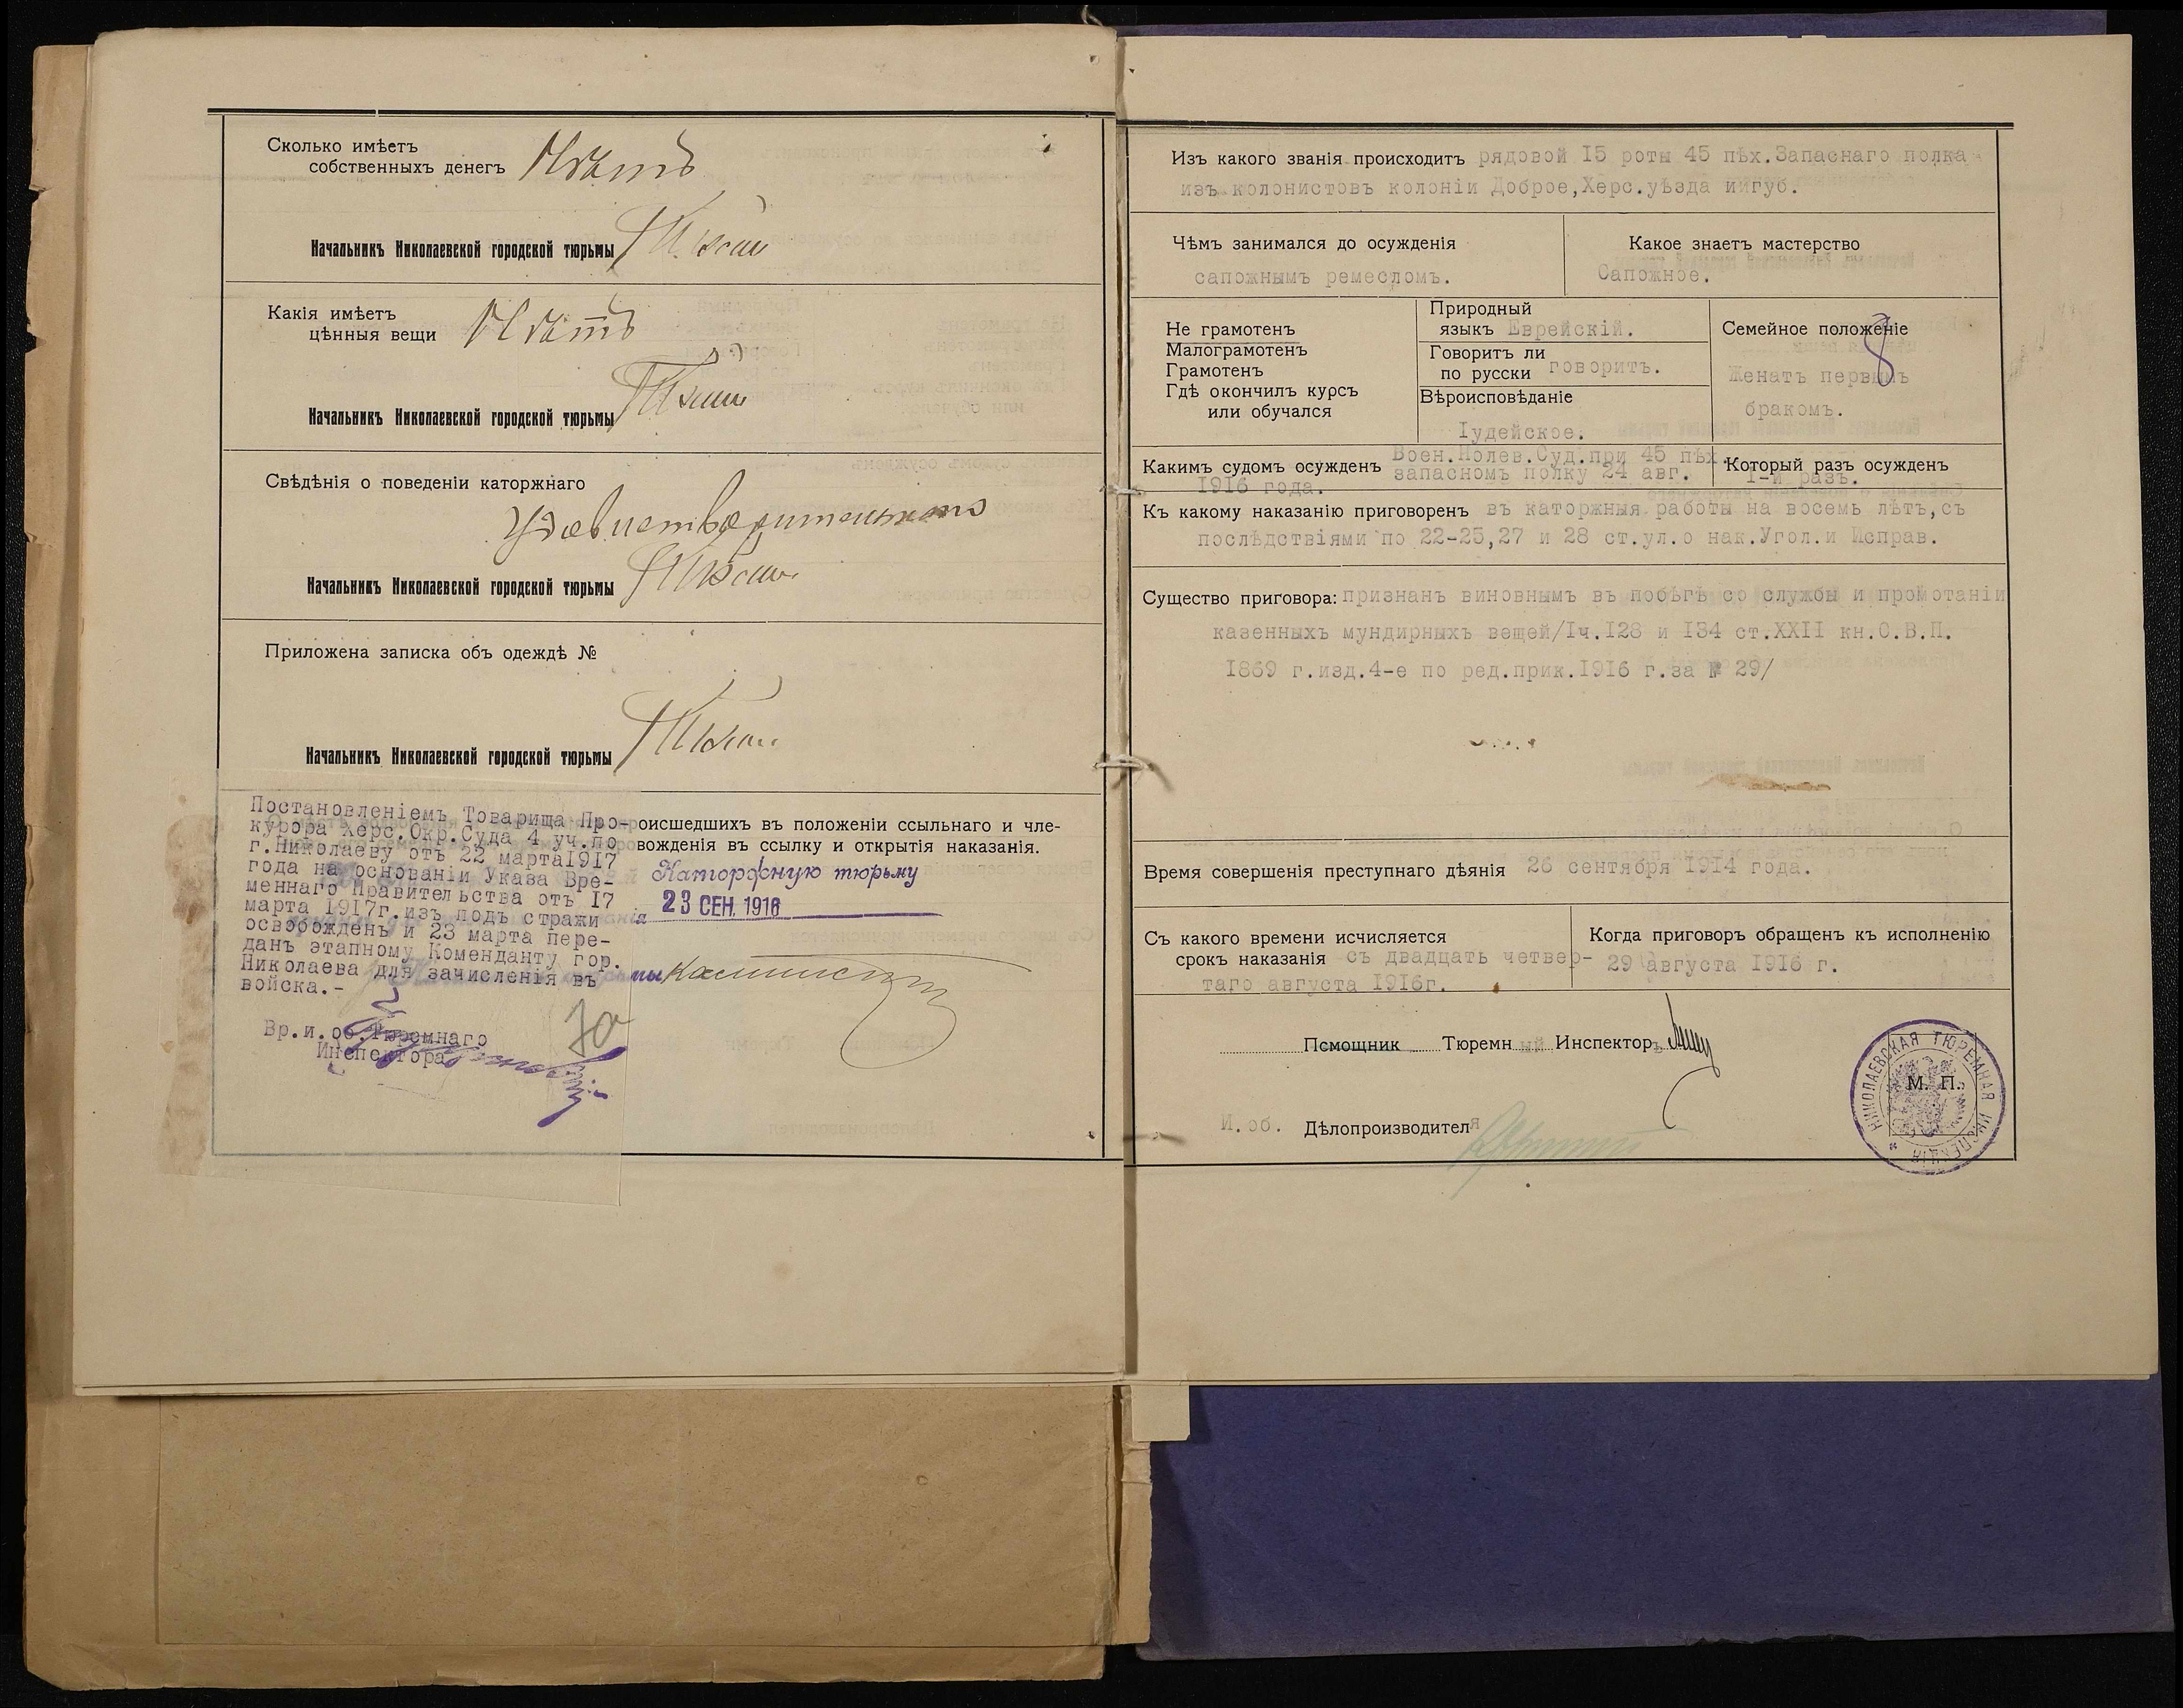 Сколько имѣетъ
собственныхъ денегъ Нѣтъ
Начальникъ Николаевской городской тюрьмы
Какія имѣетъ
цѣнныя вещи Нѣтъ
Начальникъ Николаевской городской тюрьмы
Свѣдѣнія о поведеніи каторжнаго
Удовлетворительнаго
Начальникъ Николаевской городской тюрьмы
Приложена записка объ одеждѣ №
Начальникъ Николаевской городской тюрьмы
Постановленіемъ Товарища Про-
курора Херс.Окр.Суда 4 уч.по
г.Николаеву отъ 22 марта1917
года на основаніи Указа Вре-
меннаго Правительства отъ 17
марта 1917г.изъ подъ стражи
освобожденъ и 23 марта пере-
данъ этапному Коменданту гор.
Николаева для зачисленія въ
войска.-
Вр.и.об.Тюремнаго
Инспектора
оисшедшихъ въ положеніи ссыльнаго и чле-
вожденія въ ссылку и открытія наказанія.
Каторжную тюрьму
ія 23 СЕН. 1916
Изъ какого званія происходитъ рядовой 15 роты 45 пѣх.Запаснаго полка
изъ колонистовъ колоніи Доброе,Херс.уѣзда иигуб.
Чѣмъ занимался до осужденія
сапожнымъ ремесломъ.
Какое знаетъ мастерство
Сапожное.
Не грамотенъ
Малограмотенъ
Грамотенъ
Гдѣ окончилъ курсъ
или обучался
Природный
языкъ Еврейскій.
Говоритъ ли
по русски говоритъ.
Вѣроисповѣданіе
Іудейское.
Семейное положеніе
8
Женатъ первымъ
бракомъ.
Какимъ судомъ осужденъ Воен.Полев.Суд.при 45 пѣх.
запасномъ полку 24 авг.
1916 года.
Который разъ осужденъ
1-й разъ.
Къ какому наказанію приговоренъ въ каторжныя работы на восемь лѣтъ,съ
послѣдствіями по 22-25,27 и 28 ст.ул.о нак.Угол.и Исправ.
Существо приговора: признанъ виновнымъ въ побѣгѣ со службы и промотаніи
казенныхъ мундирныхъ вещей/1ч.128 и 134 ст.XXII кн.О.В.П.
1869 г.изд.4-е по ред.прик.1916 г.за № 29/
Время совершенія преступнаго дѣянія 26 сентября 1914 года.
Съ какого времени исчисляется
срокъ наказанія съ двадцать четвер-
таго августа 1916г.
Когда приговоръ обращенъ къ исполненію
29 августа 1916 г.
Помощникъ Тюремный Инспекторъ
И.об. Дѣлопроизводителя
НИКОЛАЕВСКАЯ ТЮРЕМНАЯ ИНСПЕКЦІЯ
М. П.